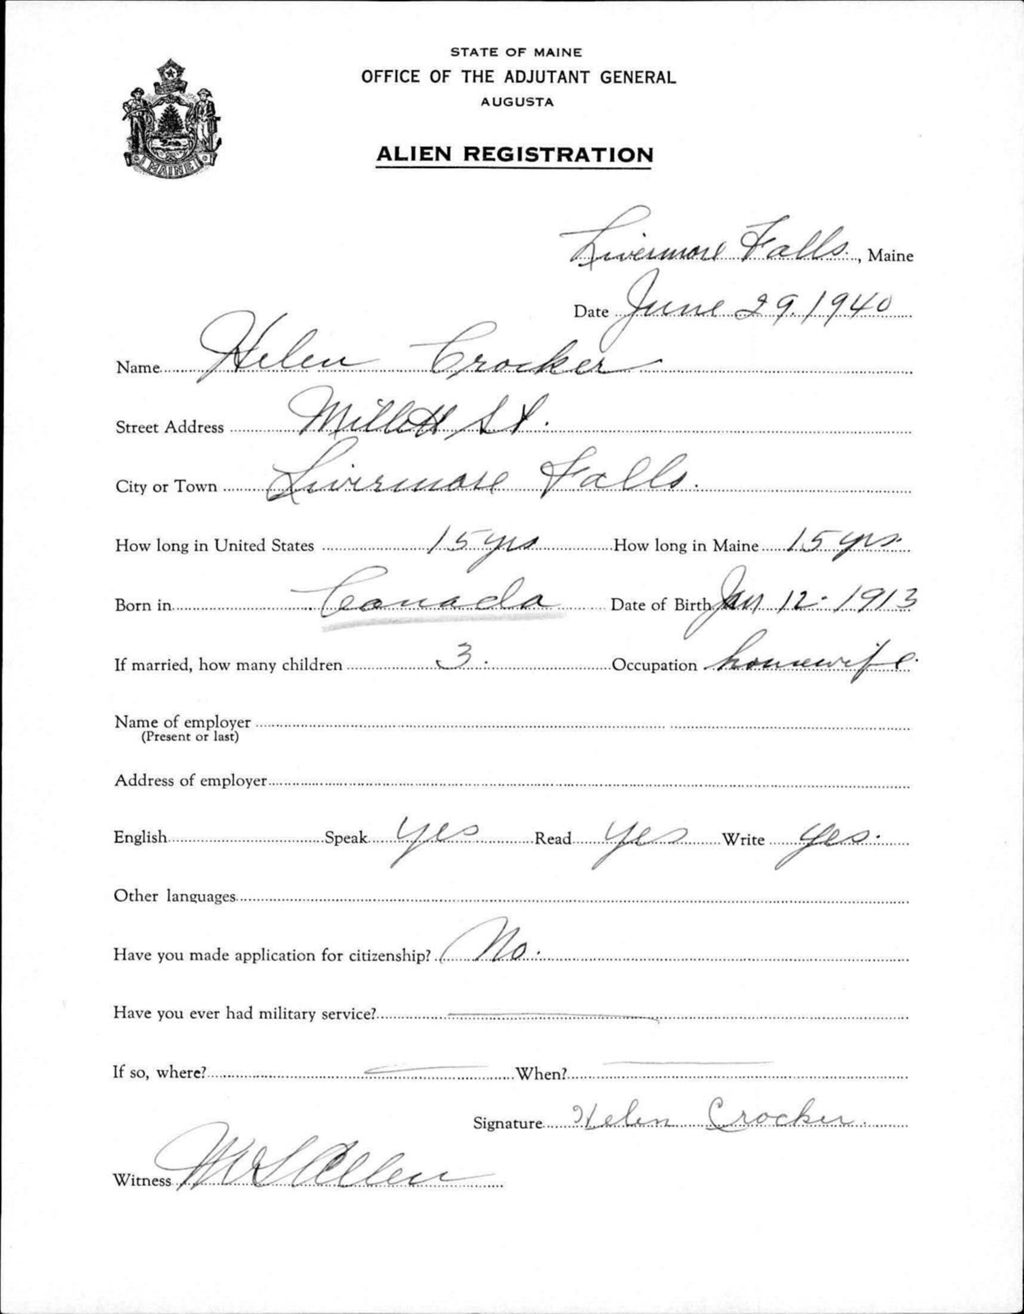 STATE OF MAINE
OFFICE OF THE ADJUTANT GENERAL
AUGUSTA
ALIEN REGISTRATION
MAINE
Livermore Falls, Maine
Date June 29, 1940
Name Helen Crocker
Street Address Millett St.
City or Town Livermore Falls.
How long in United States 15 yrs How long in Maine 15 yrs.
Born in Canada Date of Birth Jan 12 - 1913
If married, how many children 3. Occupation housewife.
Name of employer
(Present or last)
Address of employer
English Speak Yes Read Yes Write Yes.
Other languages
Have you made application for citizenship? No.
Have you ever had military service?
If so, where? When?
Signature Helen Crocker.
Witness M S Allen